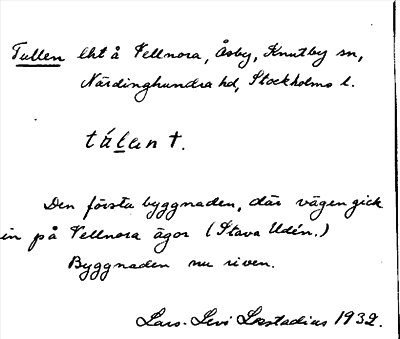 Tullen lht å Vellnora, Åsby, Knutby sn,
Närdinghundra hd, Stockholms l.
tálant.
Den första byggnaden, där vägen gick
in på Vellnora ägor (Stava Udén.)
Byggnaden nu riven.
Lars-Levi Læstadius 1932.